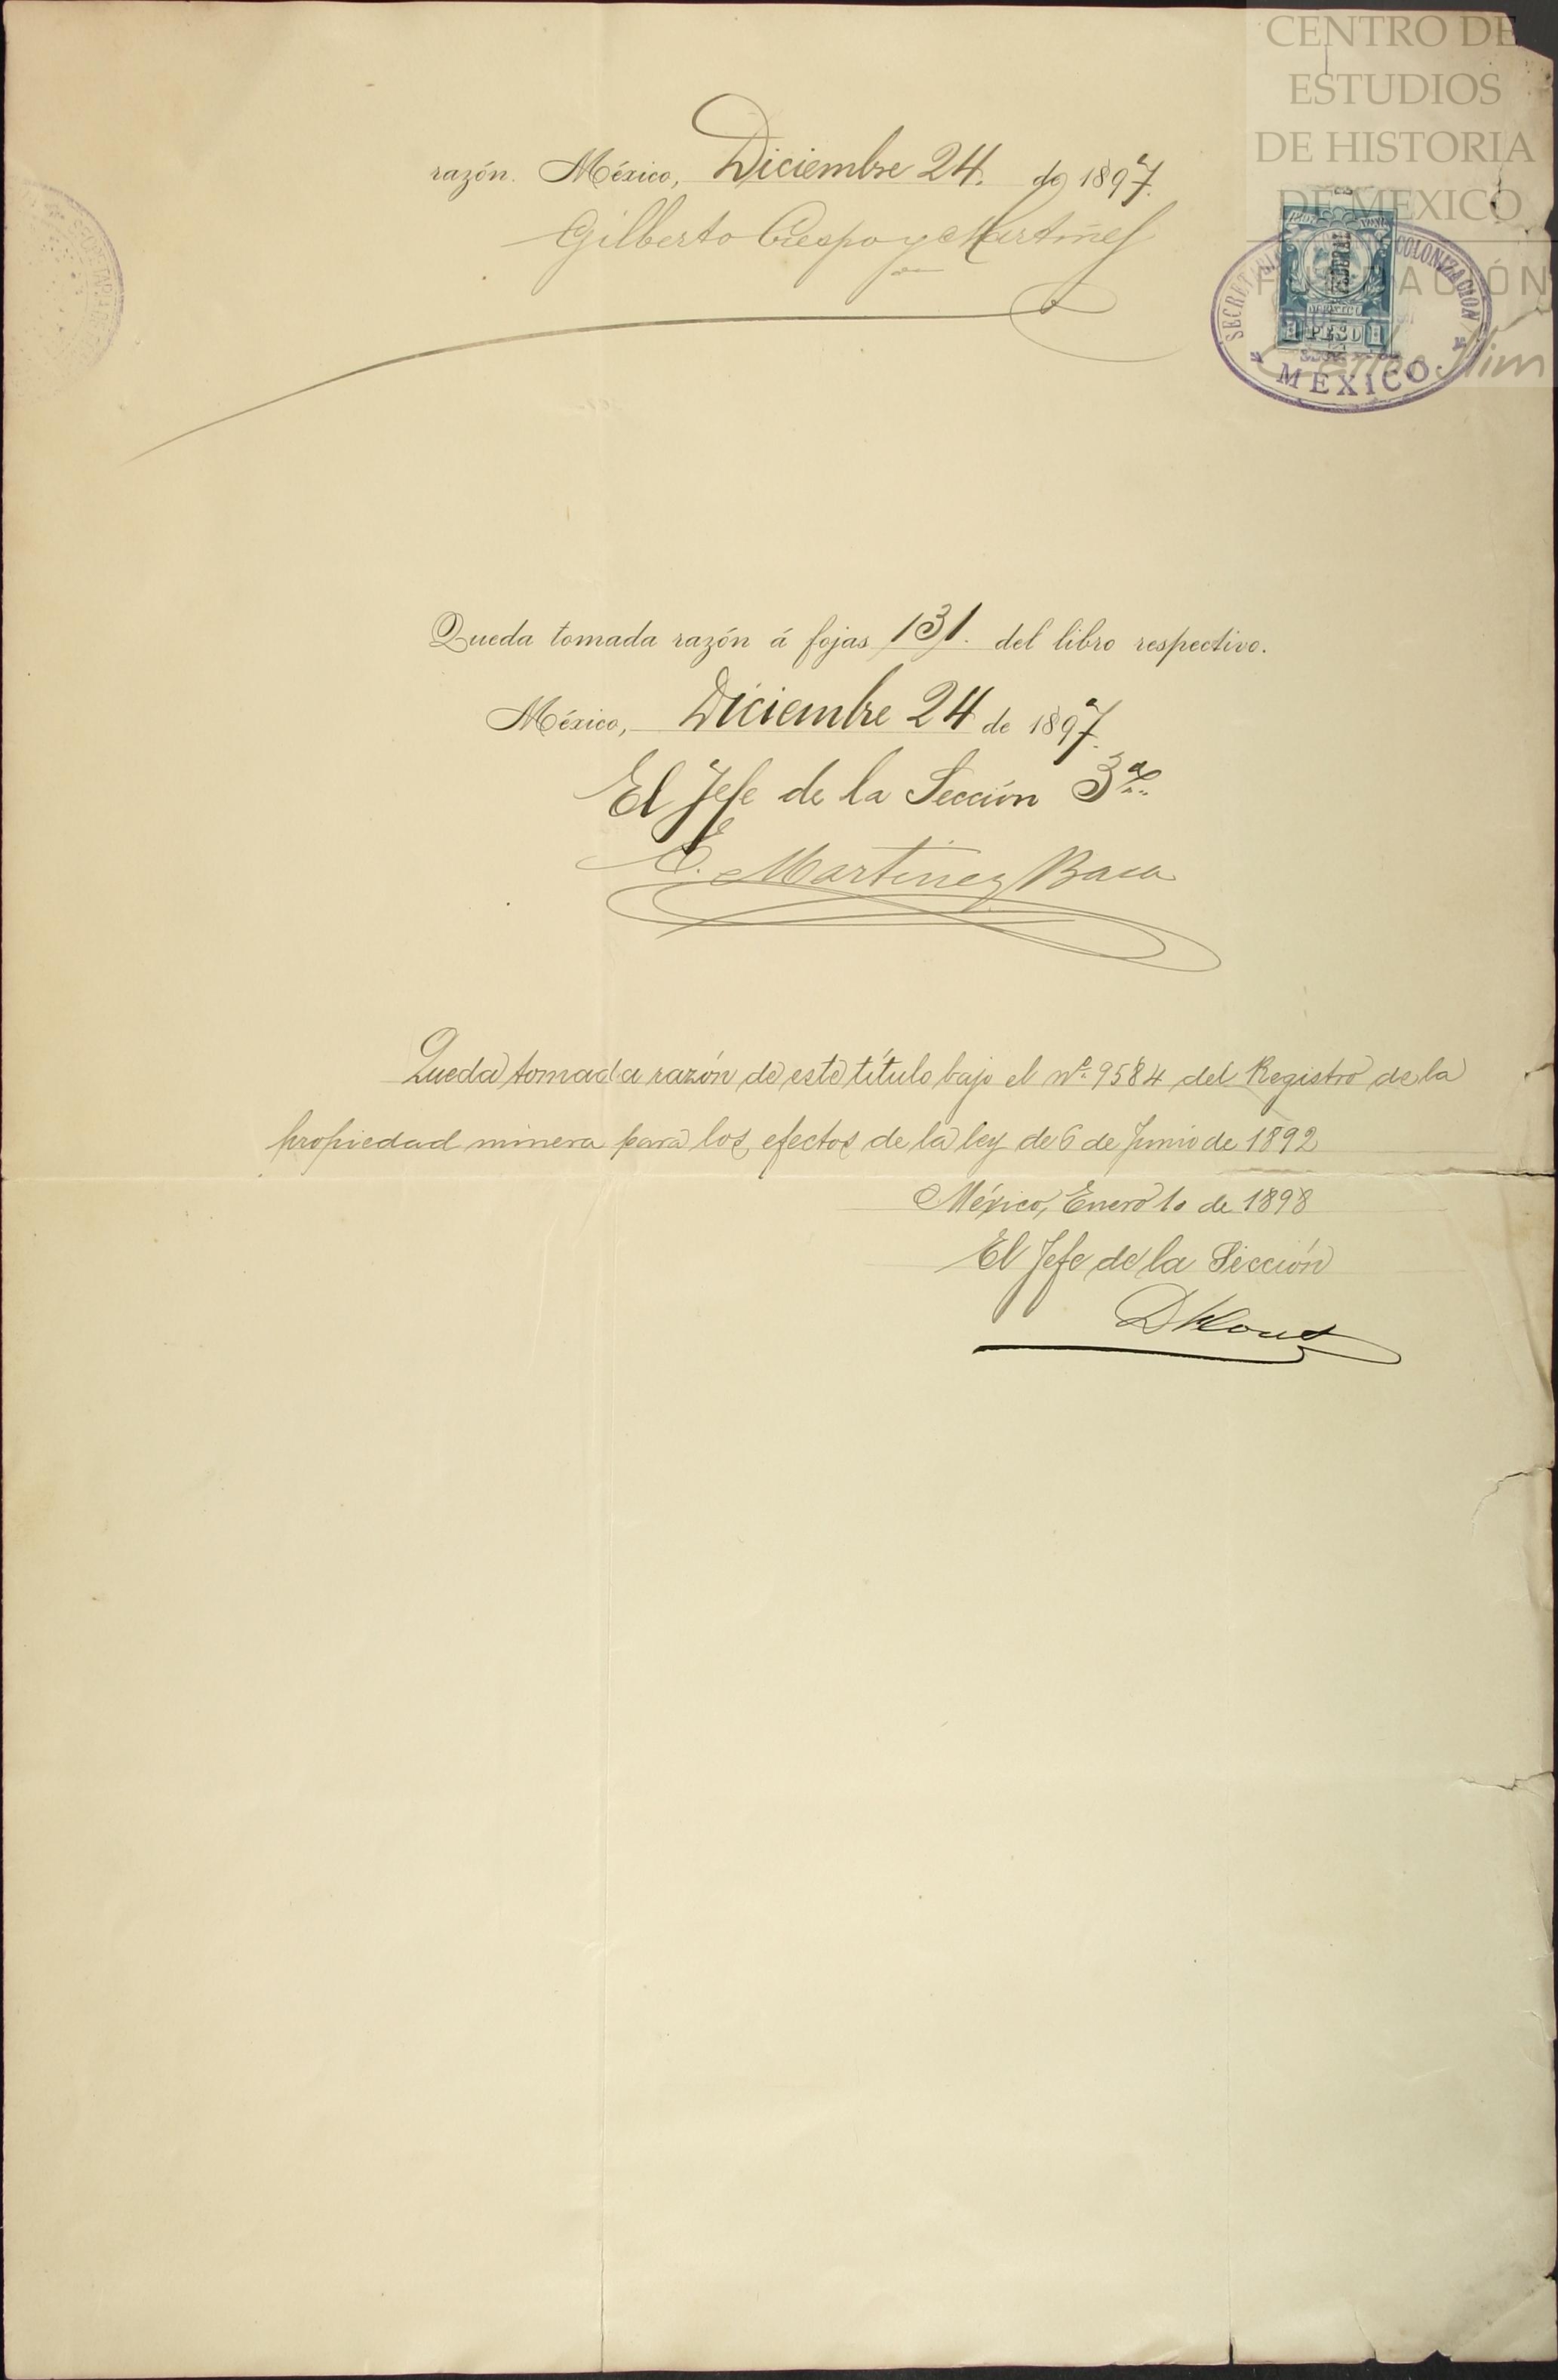 CENTRO DE
ESTUDIOS
DE HISTORIA
DE MEXICO
FUNDACIÓN
Carlos Slim
razón. México, Diciembre 24. de 1897.
Gilberto Crespo y Martínez
SECRETARIA COLONIZACION
MEXICO.
1 PESO 1
Queda tomada razón á fojas 131. del libro respectivo.
México, Diciembre 24 de 1897.
El Jefe de la Sección 3ª
E. Martinez Baca
Queda tomada razón de este título bajo el nº 9584 del Registro de la
propiedad minera para los efectos de la ley de 6 de Junio de 1892
México, Enero 1o de 1898
El Jefe de la Sección